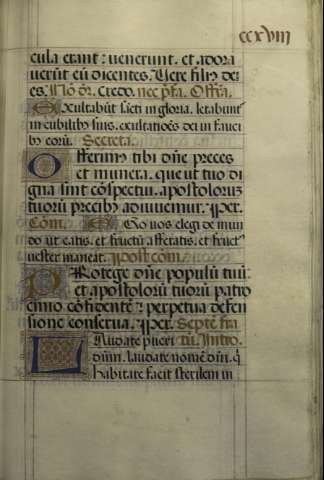 ccxviii
cula erant: venerunt. et adora
verūt eū dicentes. Vere filius dei
es. Nō dr̄. Credo. nec p̄fa. Offm̄.
Exultabūt sācti in gloria. letabunt
in cubilibus suis. exultatiōes dei in fauci
bus eorū. Secreta.
Offerimus tibi dn̄e preces
et munera. que ut tuo di
gna sint cōspectui. apostolorum
tuorū precibus adiuvemur. Per.
Cōm. Ego vos elegi de mun
do ut eatis. et fructū afferatis. et fruct
vester maneat. Postcōm.
Protege dn̄e populū tuū:
et apostolorū tuorū patro
cinio cōfidentē: perpetua defen
sione conserva. Per. Septē fra
Laudate pueri tū. Intro.
dn̄m. laudate nomē dn̄i. q̄
habitare facit sterilem in